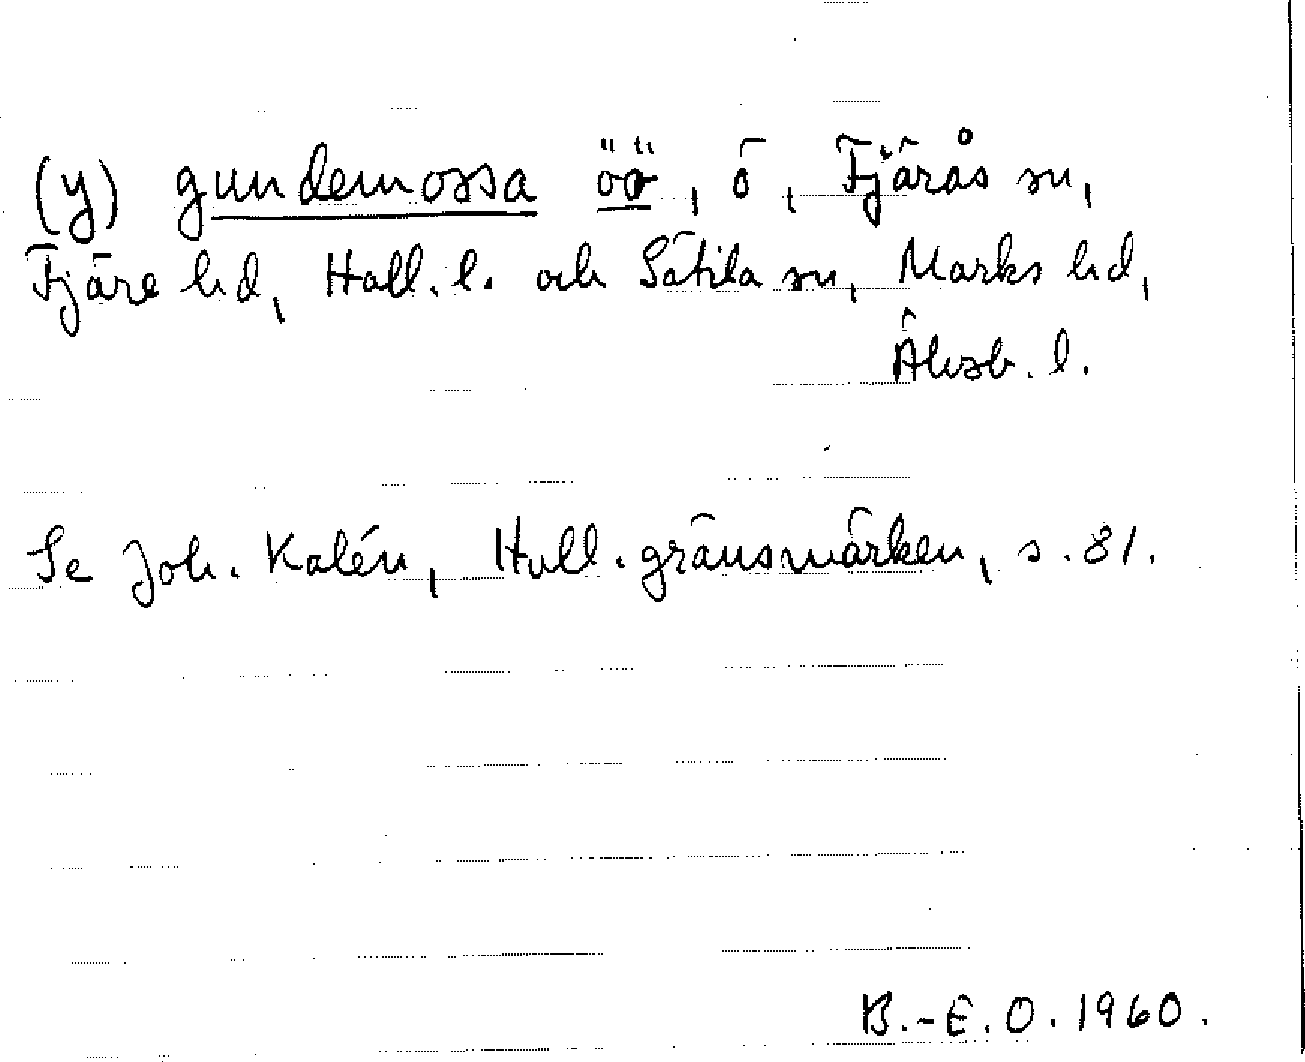 (y) gundemossa öö, ö, Fjärås sn,
Fjäre hd, Hall. l. och Sätila sn, Marks hd,
Älvsb. l.
Se Joh. Kalén, Hall. gränsmärken, s. 81.
B.-E.O. 1960.